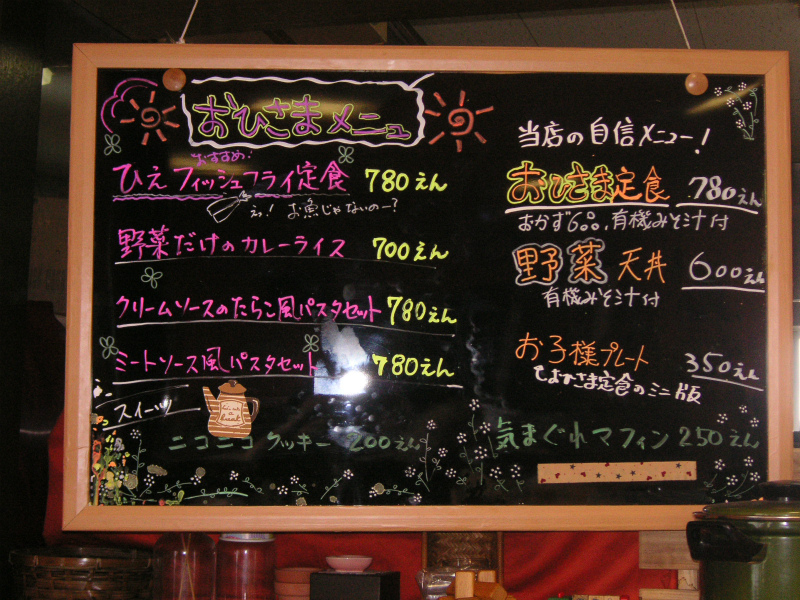 おひさまメニュー
おすすめ!
ひえフィッシュフライ定食 780えん
えっ! お魚じゃないのー?
野菜だけのカレーライス 700えん
クリームソースのたらこ風パスタセット 780えん
ミートソース風パスタセット 780えん
スイーツ
ニコニコクッキー 200えん
当店の自信メニュー!
おひさま定食 780えん
おかず6コ。有機みそ汁付
野菜天丼 600えん
有機みそ汁付
お子様プレート 350えん
おひさま定食のミニ版
気まぐれマフィン 250えん